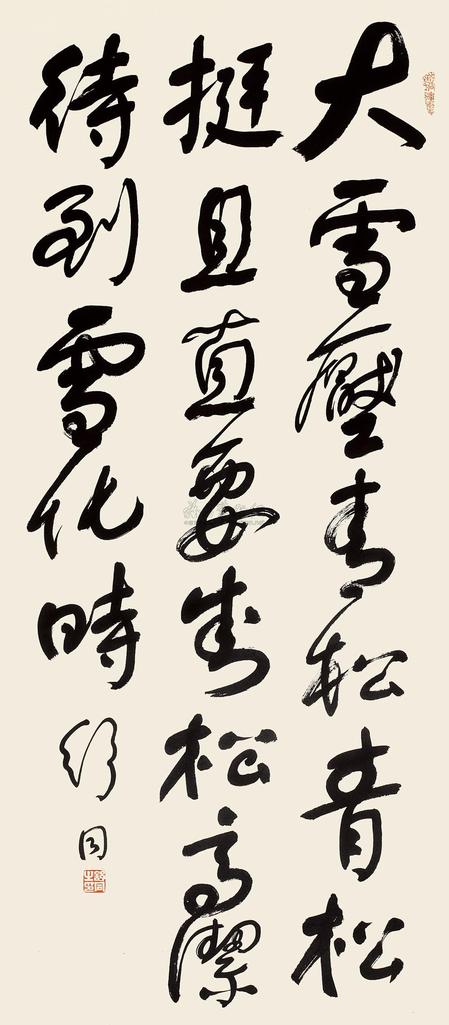 大雪壓青松青松
挺且直要知松高潔
待到雪化時
舒同